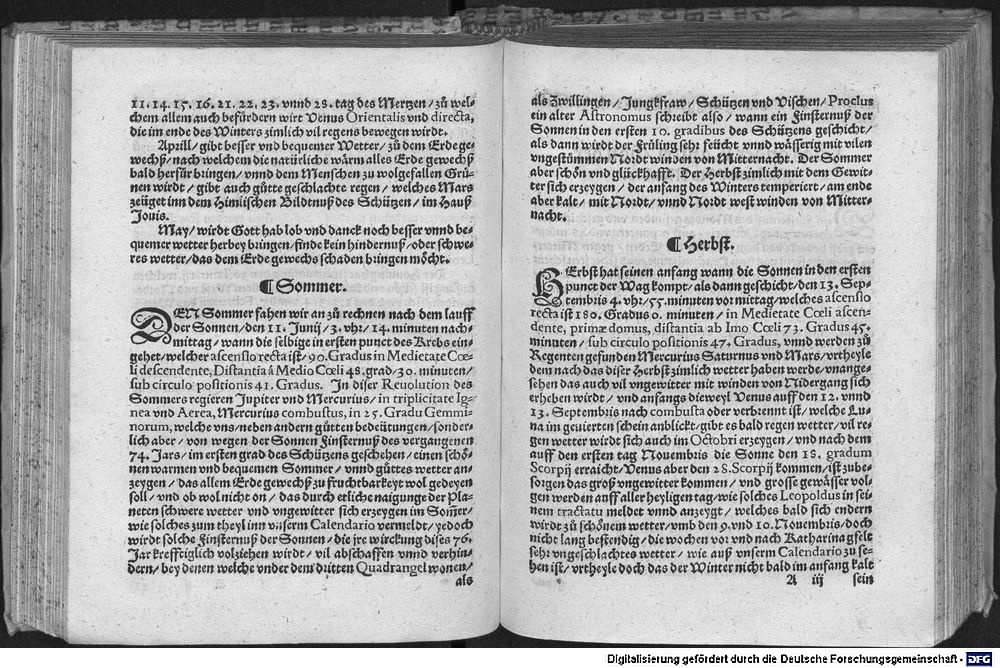 11. 14. 15. 16. 21. 22. 23. vnnd 28. tag des Mertzen / zů wel-
chem allem auch befürdern wirt Venus Orientalis vnd directa,
die im ende des Winters zimlich vil regens bewegen wirdt.
Aprill / gibt besser vnd bequemer Wetter / zů dem Erde ge-
wechß / nach welchem die natürliche wärm alles Erde gewechß
bald herfür bringen / vnnd dem Menschen zu wolgefallen Grü-
nen wirdt / gibt auch gütte geschlachte regen / welches Mars
zeüget inn dem Himlischen Bildtnuß des Schützen / im Hauß
Jouis.
May / wirdt Gott hab lob vnd danck noch besser vnnd be-
quemer wetter herbey bringen / finde kein hindernuß / oder schwe-
res wetter / das dem Erde gewechs schaden bringen möcht.
¶ Sommer.
DEN Sommer fahen wir an zů rechnen nach dem lauff
der Sonnen / den 11. Junij / 3. vhr / 14. minuten nach-
mittag / wann die selbige in ersten punct des Krebs ein-
gehet / welcher ascensio recta ist / 90. Gradus in Medietate Cœ-
li descendente, Distantia â Medio Cœli 48. grad / 30. minuten /
sub circulo positionis 41. Gradus. In diser Reuolution des
Sommers regieren Jupiter vnd Mercurius / in triplicitate Ig-
nea vnd Aerea, Mercurius combustus, in 25. Gradu Gemmi-
norum, welche vns / neben andern gütten bedeütungen / sonder-
lich aber / von wegen der Sonnen Finsternuß des vergangenen
74. Jars / im ersten grad des Schützens geschehen / einen schö-
nen warmen vnd bequemen Sommer / vnnd güttes wetter an-
zeygen / das allem Erde gewechß zu fruchtbarkeyt wol gedeyen
soll / vnd ob wol nicht on / das durch etliche naigunge der Pla-
neten schwere wetter vnd vngewitter sich erzeigen im Som̃er /
wie solches zum theyl inn vnserm Calendario vermeldt / yedoch
wirdt solche Finsternuß der Sonnen / die jre wirckung dises 76.
Jar krefftiglich volziehen wirdt / vil abschaffen vnnd verhin-
dern / bey denen welche vnder dem dritten Quadrangel wonen /
als
als Zwillingen / Jungkfraw / Schützen vnd Vischen / Proclus
ein alter Astronomus schreibt also / wann ein Finsternuß der
Sonnen in den ersten 10. gradibus des Schützens geschicht /
als dann wirdt der Früling sehr feücht vnnd wässerig mit vilen
vngestümmen Nordt winden von Mitternacht. Der Sommer
aber schön vnd glückhafft. Der Herbst zimlich mit dem Gewit-
ter sich erzeygen / der anfang des Winters temperiert / am ende
aber kalt / mit Nordt / vnnd Nordt west winden von Mitter-
nacht.
¶ Herbst.
HErbst hat seinen anfang wann die Sonnen in den ersten
punct der Wag kompt / als dann geschicht / den 13. Sep-
tembris 4. vhr / 55. minuten vor mittag / welches ascensio
recta ist 180. Gradus 0. minuten / in Medietate Cœli ascen-
dente, primæ domus, distantia ab Imo Cœli 73. Gradus 45.
minuten / sub circulo positionis 47. Gradus, vnnd werden zů
Regenten gefunden Mercurius Saturnus vnd Mars / vrtheyle
dem nach das diser Herbst zimlich wetter haben werde / vnange-
sehen das auch vil vngewitter mit winden von Nidergang sich
erheben wirdt / vnd anfangs dieweyl Venus auff den 12. vnnd
13. Septembris nach combusta oder verbrennt ist / welche Lu-
na im geuierten schein anblickt / gibt es bald regen wetter / vil re-
gen wetter wirdt sich auch im Octobri erzeygen / vnd nach dem
auff den ersten tag Nouembris die Sonne den 18. gradum
Scorpij erraicht / Venus aber den 28. Scorpij kommen / ist zu be-
sorgen das groß vngewitter kommen / vnd grosse gewässer vol-
gen werden auff aller heyligen tag / wie solches Leopoldus in sei-
nem tractatu meldet vnnd anzeygt / welches bald sich endern
wirdt zů schönem wetter / vmb den 9. vnd 10. Nouembris / doch
nicht lang bestendig / die wochen vor vnd nach Katharina gselt
sehr vngeschlachtes wetter / wie auß vnserm Calendario zu se-
hen ist / vrtheyle doch das der Winter nicht bald im anfang kalt
A iij
sein
Digitalisierung gefördert durch die Deutsche Forschungsgemeinschaft - DFG